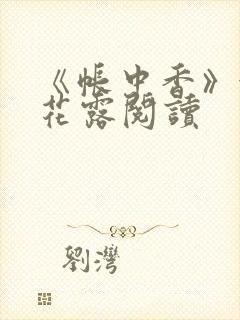 《帳中香》
花露閱讀
劉灣